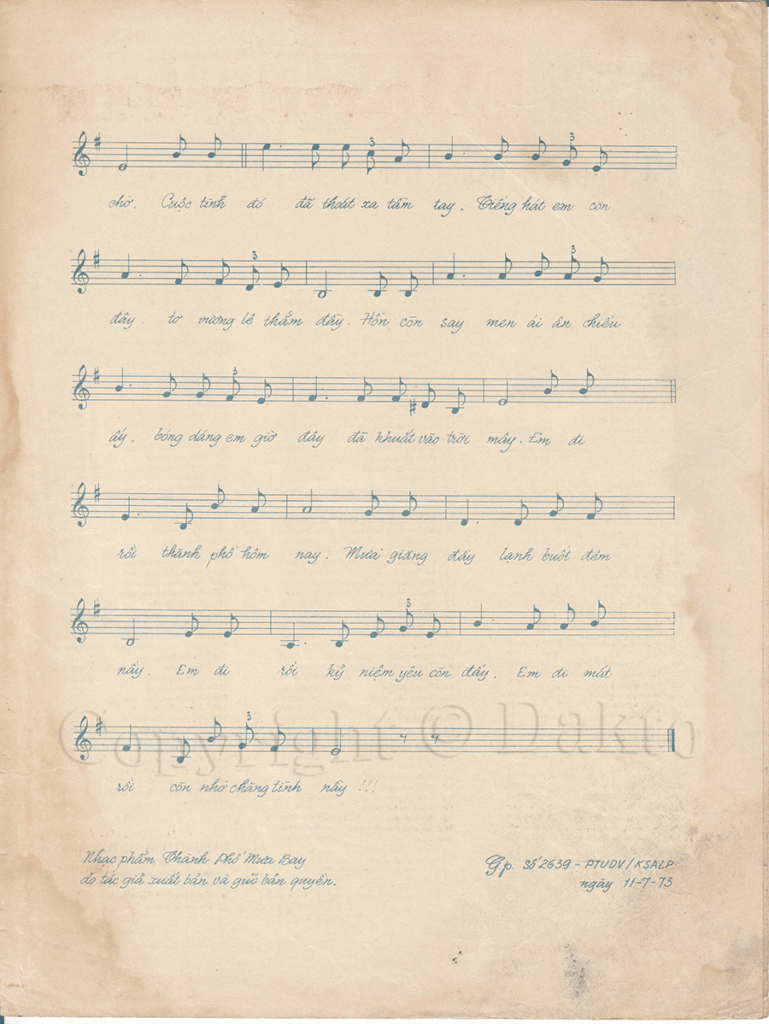 chờ. Cuộc tình đó đã thoát xa tầm tay. Tiếng hát em còn
đây tơ vương lệ thắm đầy. Hồn còn say men ái ân chiều
ấy, bóng dáng em giờ đây đã khuất vào trời mây. Em đi
rồi thành phố hôm nay. Mưa giăng đầy lạnh buốt đêm
nầy. Em đi rồi kỷ niệm yêu còn đấy. Em đi mất
Copyright © Dakto
rồi còn nhớ chăng tình nầy !!!
Nhạc phẩm Thành Phố Mưa Bay
do tác giả xuất bản và giữ bản quyền.
Gp. Số 2639 - PTUDV/KSALP
ngày 11-7-73